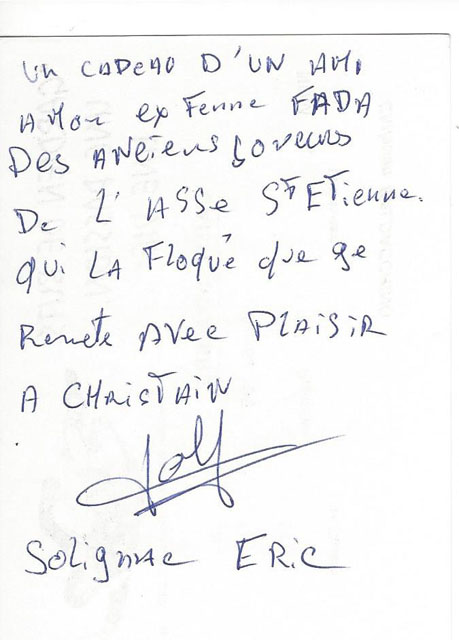 Un CADEAU D'UN AMI
A MOn ex Femme FADA
Des ANCiens JOUEURS
De L'ASSe St ETienne.
qui LA Floqué que ge
Remets AVec PLAiSiR
A CHRiSTAiN
SOLignac ERiC